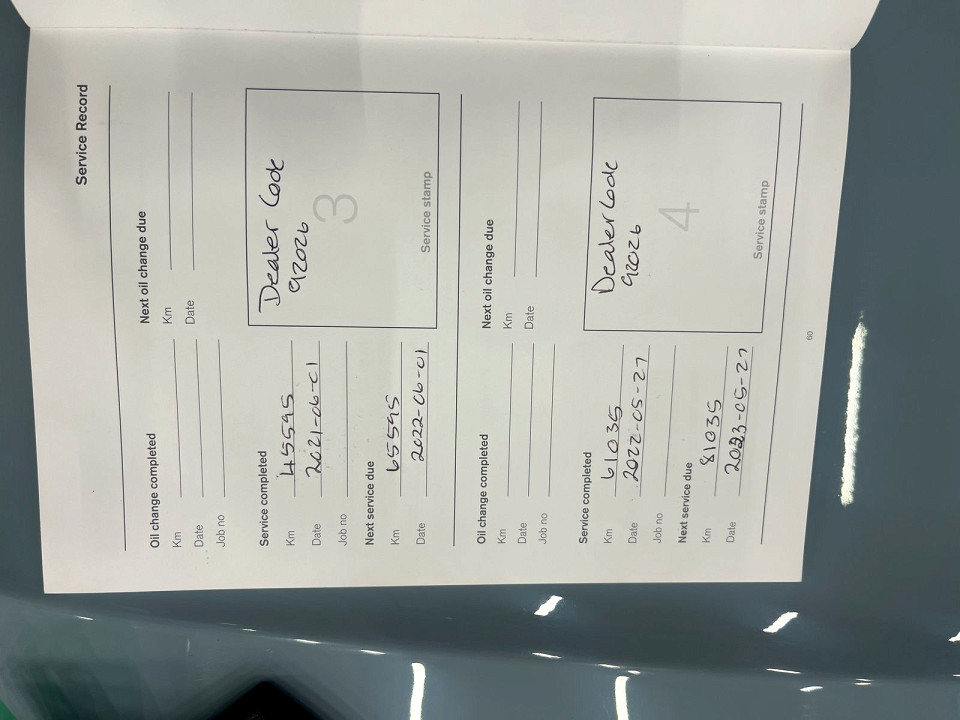 Service Record
Oil change completed
Next oil change due
Km
Km
Date
Date
Job no
Service completed
Km 45595
Date 2021-06-01
Job no
Next service due
Km 65595
Date 2022-06-01
Dealer Code
92026
3
Service stamp
Oil change completed
Next oil change due
Km
Km
Date
Date
Job no
Service completed
Km 61035
Date 2022-05-27
Job no
Next service due
Km 81035
Date 2023-05-27
Dealer Code
92026
4
Service stamp
60